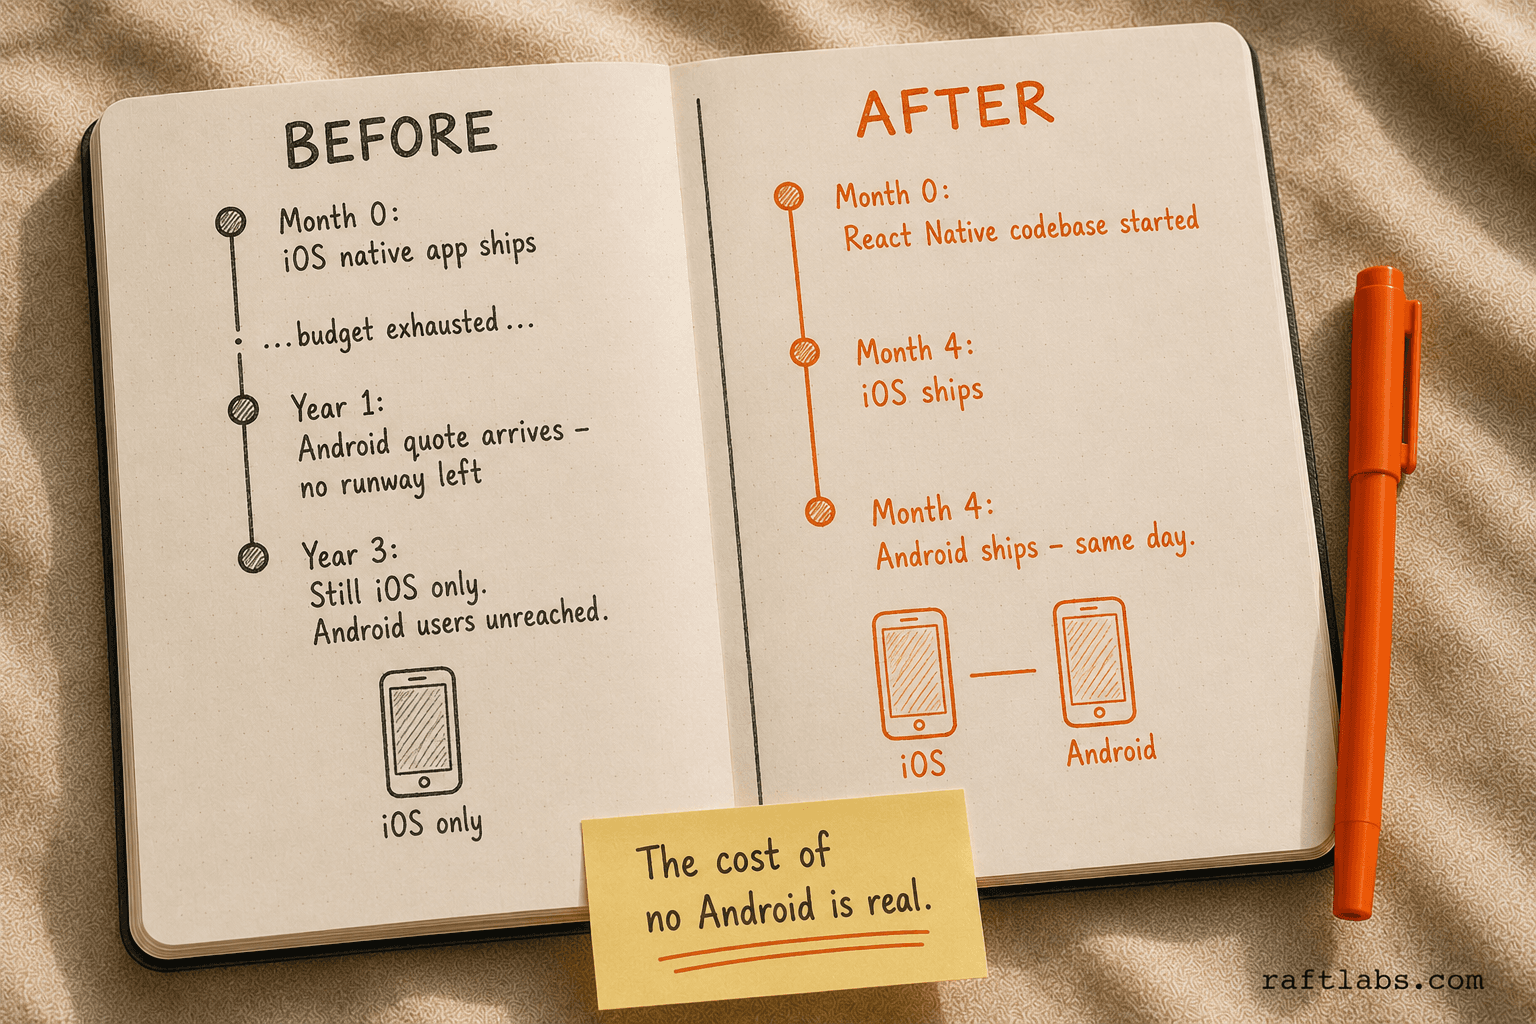 BEFORE
Month 0:
iOS native app ships
...budget exhausted...
Year 1:
Android quote arrives –
no runway left
Year 3:
Still iOS only.
Android users unreached.
iOS only
AFTER
Month 0:
React Native codebase started
Month 4:
iOS ships
Month 4:
Android ships – same day.
iOS
Android
The cost of
no Android is real.
raftlabs.com